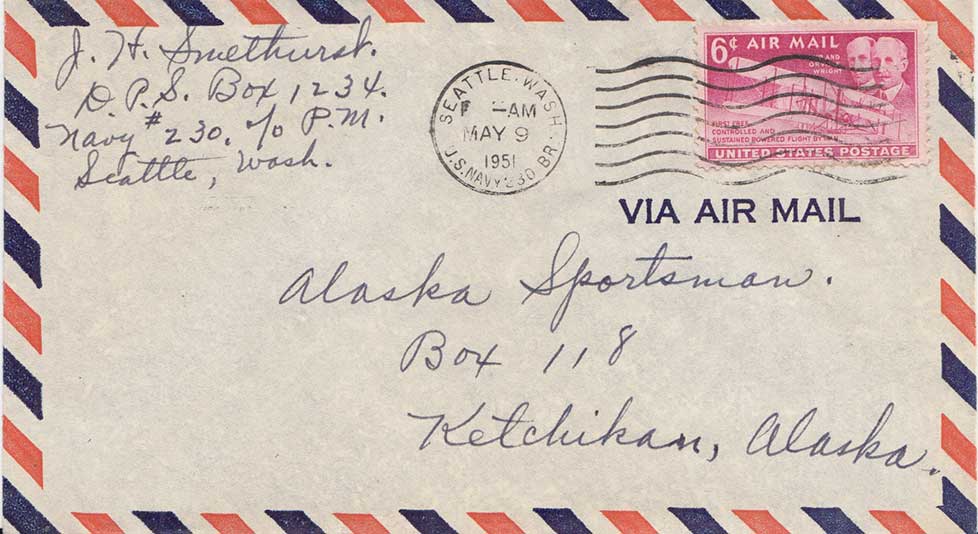 J. H. Smethurst.
D.P.S. Box 1234.
Navy # 230. c/o P.M.
Seattle, Wash.
SEATTLE, WASH.
AM
MAY 9
1951
U.S. NAVY 230 BR.
6¢ AIR MAIL
AND
ORVILLE
WRIGHT
FIRST FREE
CONTROLLED AND
SUSTAINED POWERED FLIGHT BY MAN
UNITED STATES POSTAGE
VIA AIR MAIL
Alaska Sportsman.
Box 118
Ketchikan, Alaska.